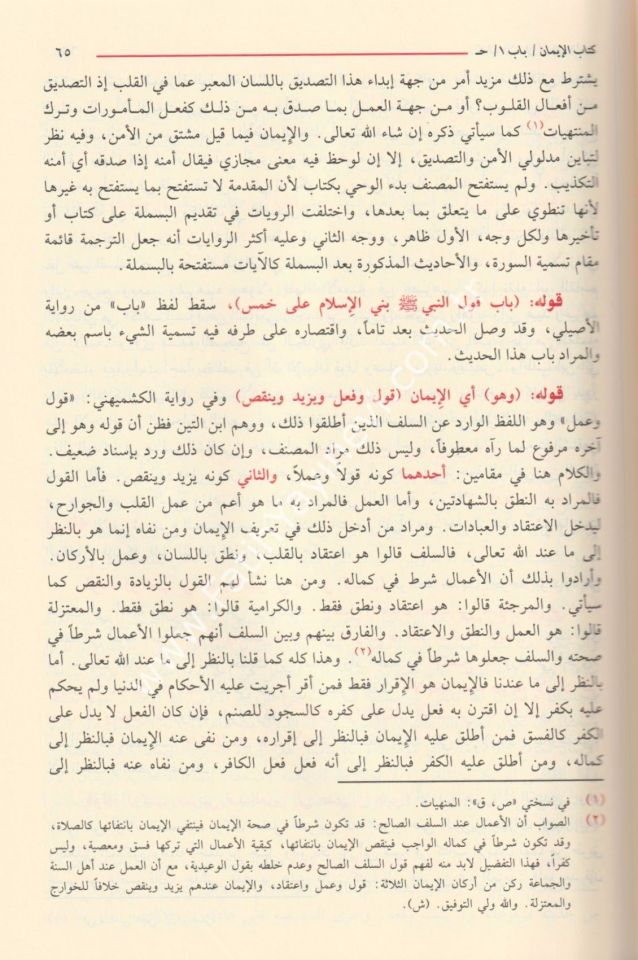 كتاب الإيمان / باب ١ / حـ ٦٥
يشترط مع ذلك مزيد أمر من جهة إبداء هذا التصديق باللسان المعبر عما في القلب إذ التصديق
من أفعال القلوب؟ أو من جهة العمل بما صدق به من ذلك كفعل المأمورات وترك
المنتهيات(١) كما سيأتي ذكره إن شاء الله تعالى. والإيمان فيما قيل مشتق من الأمن، وفيه نظر
لتباين مدلولي الأمن والتصديق، إلا إن لوحظ فيه معنى مجازي فيقال أمنه إذا صدقه أي أمنه
التكذيب. ولم يستفتح المصنف بدء الوحي بكتاب لأن المقدمة لا تستفتح بما يستفتح به غيرها
لأنها تنطوي على ما يتعلق بما بعدها، واختلفت الرويات في تقديم البسملة على كتاب أو
تأخيرها ولكل وجه، الأول ظاهر، ووجه الثاني وعليه أكثر الروايات أنه جعل الترجمة قائمة
مقام تسمية السورة، والأحاديث المذكورة بعد البسملة كالآيات مستفتحة بالبسملة.
قوله: (باب قول النبي ﷺ بني الإسلام على خمس)، سقط لفظ «باب» من رواية
الأصيلي، وقد وصل الحديث بعد تاماً، واقتصاره على طرفه فيه تسمية الشيء باسم بعضه
والمراد باب هذا الحديث.
قوله: (وهو) أي الإيمان (قول وفعل ويزيد وينقص) وفي رواية الكشميهني: «قول
وعمل» وهو اللفظ الوارد عن السلف الذين أطلقوا ذلك، ووهم ابن التين فظن أن قوله وهو إلى
آخره مرفوع لما رآه معطوفاً، وليس ذلك مراد المصنف، وإن كان ذلك ورد بإسناد ضعيف.
والكلام هنا في مقامين: أحدهما كونه قولاً وعملاً، والثاني كونه يزيد وينقص. فأما القول
فالمراد به النطق بالشهادتين، وأما العمل فالمراد به ما هو أعم من عمل القلب والجوارح،
ليدخل الاعتقاد والعبادات. ومراد من أدخل ذلك في تعريف الإيمان ومن نفاه إنما هو بالنظر
إلى ما عند الله تعالى، فالسلف قالوا هو اعتقاد بالقلب، ونطق باللسان، وعمل بالأركان.
وأرادوا بذلك أن الأعمال شرط في كماله. ومن هنا نشأ لهم القول بالزيادة والنقص كما
سيأتي. والمرجئة قالوا: هو اعتقاد ونطق فقط. والكرامية قالوا: هو نطق فقط. والمعتزلة
قالوا: هو العمل والنطق والاعتقاد. والفارق بينهم وبين السلف أنهم جعلوا الأعمال شرطاً في
صحته والسلف جعلوها شرطاً في كماله(٢). وهذا كله كما قلنا بالنظر إلى ما عند الله تعالى. أما
بالنظر إلى ما عندنا فالإيمان هو الإقرار فقط فمن أقر أجريت عليه الأحكام في الدنيا ولم يحكم
عليه بكفر إلا إن اقترن به فعل يدل على كفره كالسجود للصنم، فإن كان الفعل لا يدل على
الكفر كالفسق فمن أطلق عليه الإيمان فبالنظر إلى إقراره، ومن نفى عنه الإيمان فبالنظر إلى
كماله، ومن أطلق عليه الكفر فبالنظر إلى أنه فعل فعل الكافر، ومن نفاه عنه فبالنظر إلى
(١) في نسختي «ص، ق»: المنهيات.
(٢) الصواب أن الأعمال عند السلف الصالح: قد تكون شرطاً في صحة الإيمان فينتفي الإيمان بانتفائها كالصلاة،
وقد تكون شرطاً في كماله الواجب فينقص الإيمان بانتفائها، كبقية الأعمال التي تركها فسق ومعصية، وليس
كفراً، فهذا التفصيل لابد منه لفهم قول السلف الصالح وعدم خلطه بقول الوعيدية، مع أن العمل عند أهل السنة
والجماعة ركن من أركان الإيمان الثلاثة: قول وعمل واعتقاد، والإيمان عندهم يزيد وينقص خلافاً للخوارج
والمعتزلة. والله ولي التوفيق. (ش).